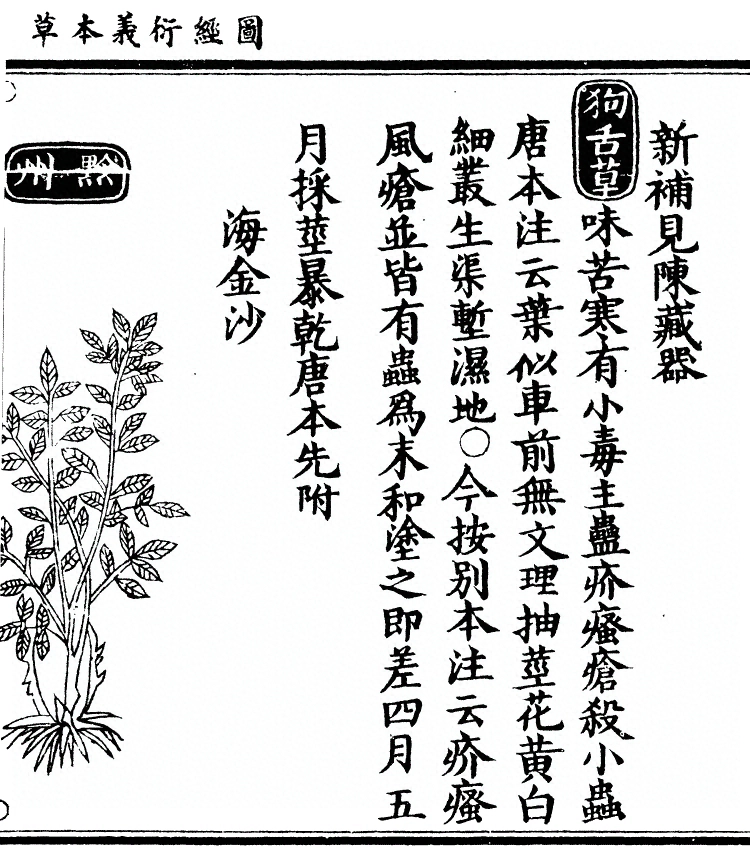 圖經衍義本草
新補見陳藏器
狗舌草味苦寒有小毒主蠱疥瘙瘡殺小蟲
唐本注云葉似車前無文理抽莖花黃白
細叢生渠塹濕地○今按別本注云疥瘙
風瘡並皆有蟲爲末和塗之即差四月五
月採莖暴乾唐本先附
海金沙
黔州